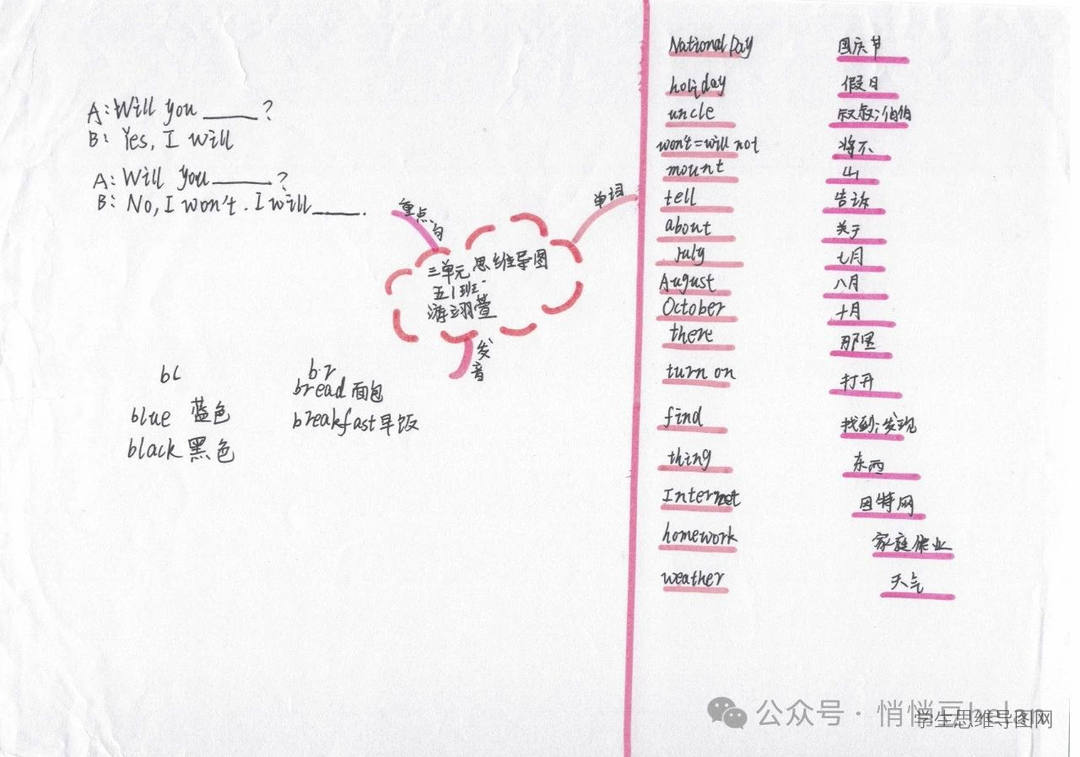 A: Will you ____?
B: Yes, I will
A: Will you ____?
B: No, I won't. I will ____.
重点句
单词
三单元思维导图
五1班
游翊萱
发音
bl
blue 蓝色
black 黑色
br
bread 面包
breakfast 早饭
National Day 国庆节
holiday 假日
uncle 叔叔;伯伯
won't=will not 将不
mount 山
tell 告诉
about 关于
July 七月
August 八月
October 十月
there 那里
turn on 打开
find 找到;发现
thing 东西
Internet 因特网
homework 家庭作业
weather 天气
公众号 · 悄悄豆
学生思维导图网